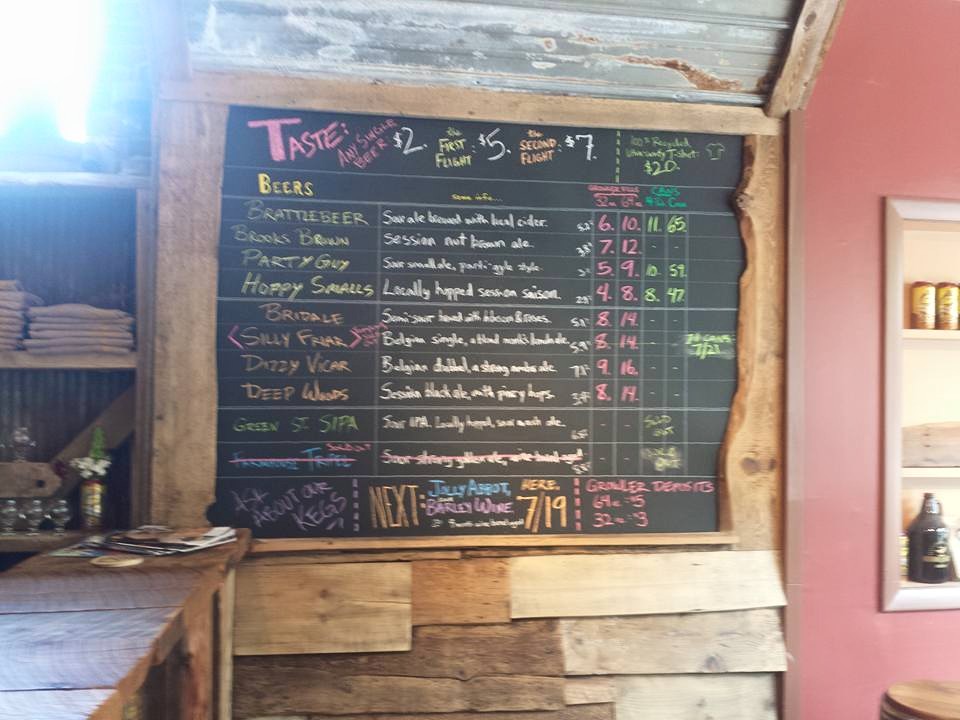 TASTE: ANY SINGLE BEER $2. the FIRST FLIGHT: $5. the SECOND FLIGHT: $7.
100% Recycled T-shirt: $20.
BEERS some info... GROWLER FILLS CANS
32oz 64oz 4Pk Case
BRATTLEBEER Sour ale brewed with local cider. 6. 10. 11. 65.
BROOKS BROWN Session nut brown ale. 7. 12. - -
PARTY GUY Sour small ale, parti-gyle style. 5. 9. 10. 59.
HOPPY SMALLS Locally hopped session saison. 4. 8. 8. 47.
BRIDALE Semi-sour brewed with hibiscus & roses. 8. 14. - -
<SILLY FRIAR> Belgian single, a blond monk's handmade 8. 14. - - IN CANS 7/21
DIZZY VICAR Belgian dubbel, a strong amber ale. 9. 16. - -
DEEP WOODS Session black ale, with piney hops. 8. 14. - -
GREEN ST. SIPA Sour IPA. Locally hopped, sour mash ale. - - SOLD OUT
FARMHOUSE TRIPEL SOLD OUT Sour strong golden ale, wine barrel aged - - SOLD OUT
ASK ABOUT OUR KEGS
NEXT: JOLLY ABBOT, BARLEY WINE. HERE. 7/19
GROWLER DEPOSITS
64oz - $5
32oz - $3